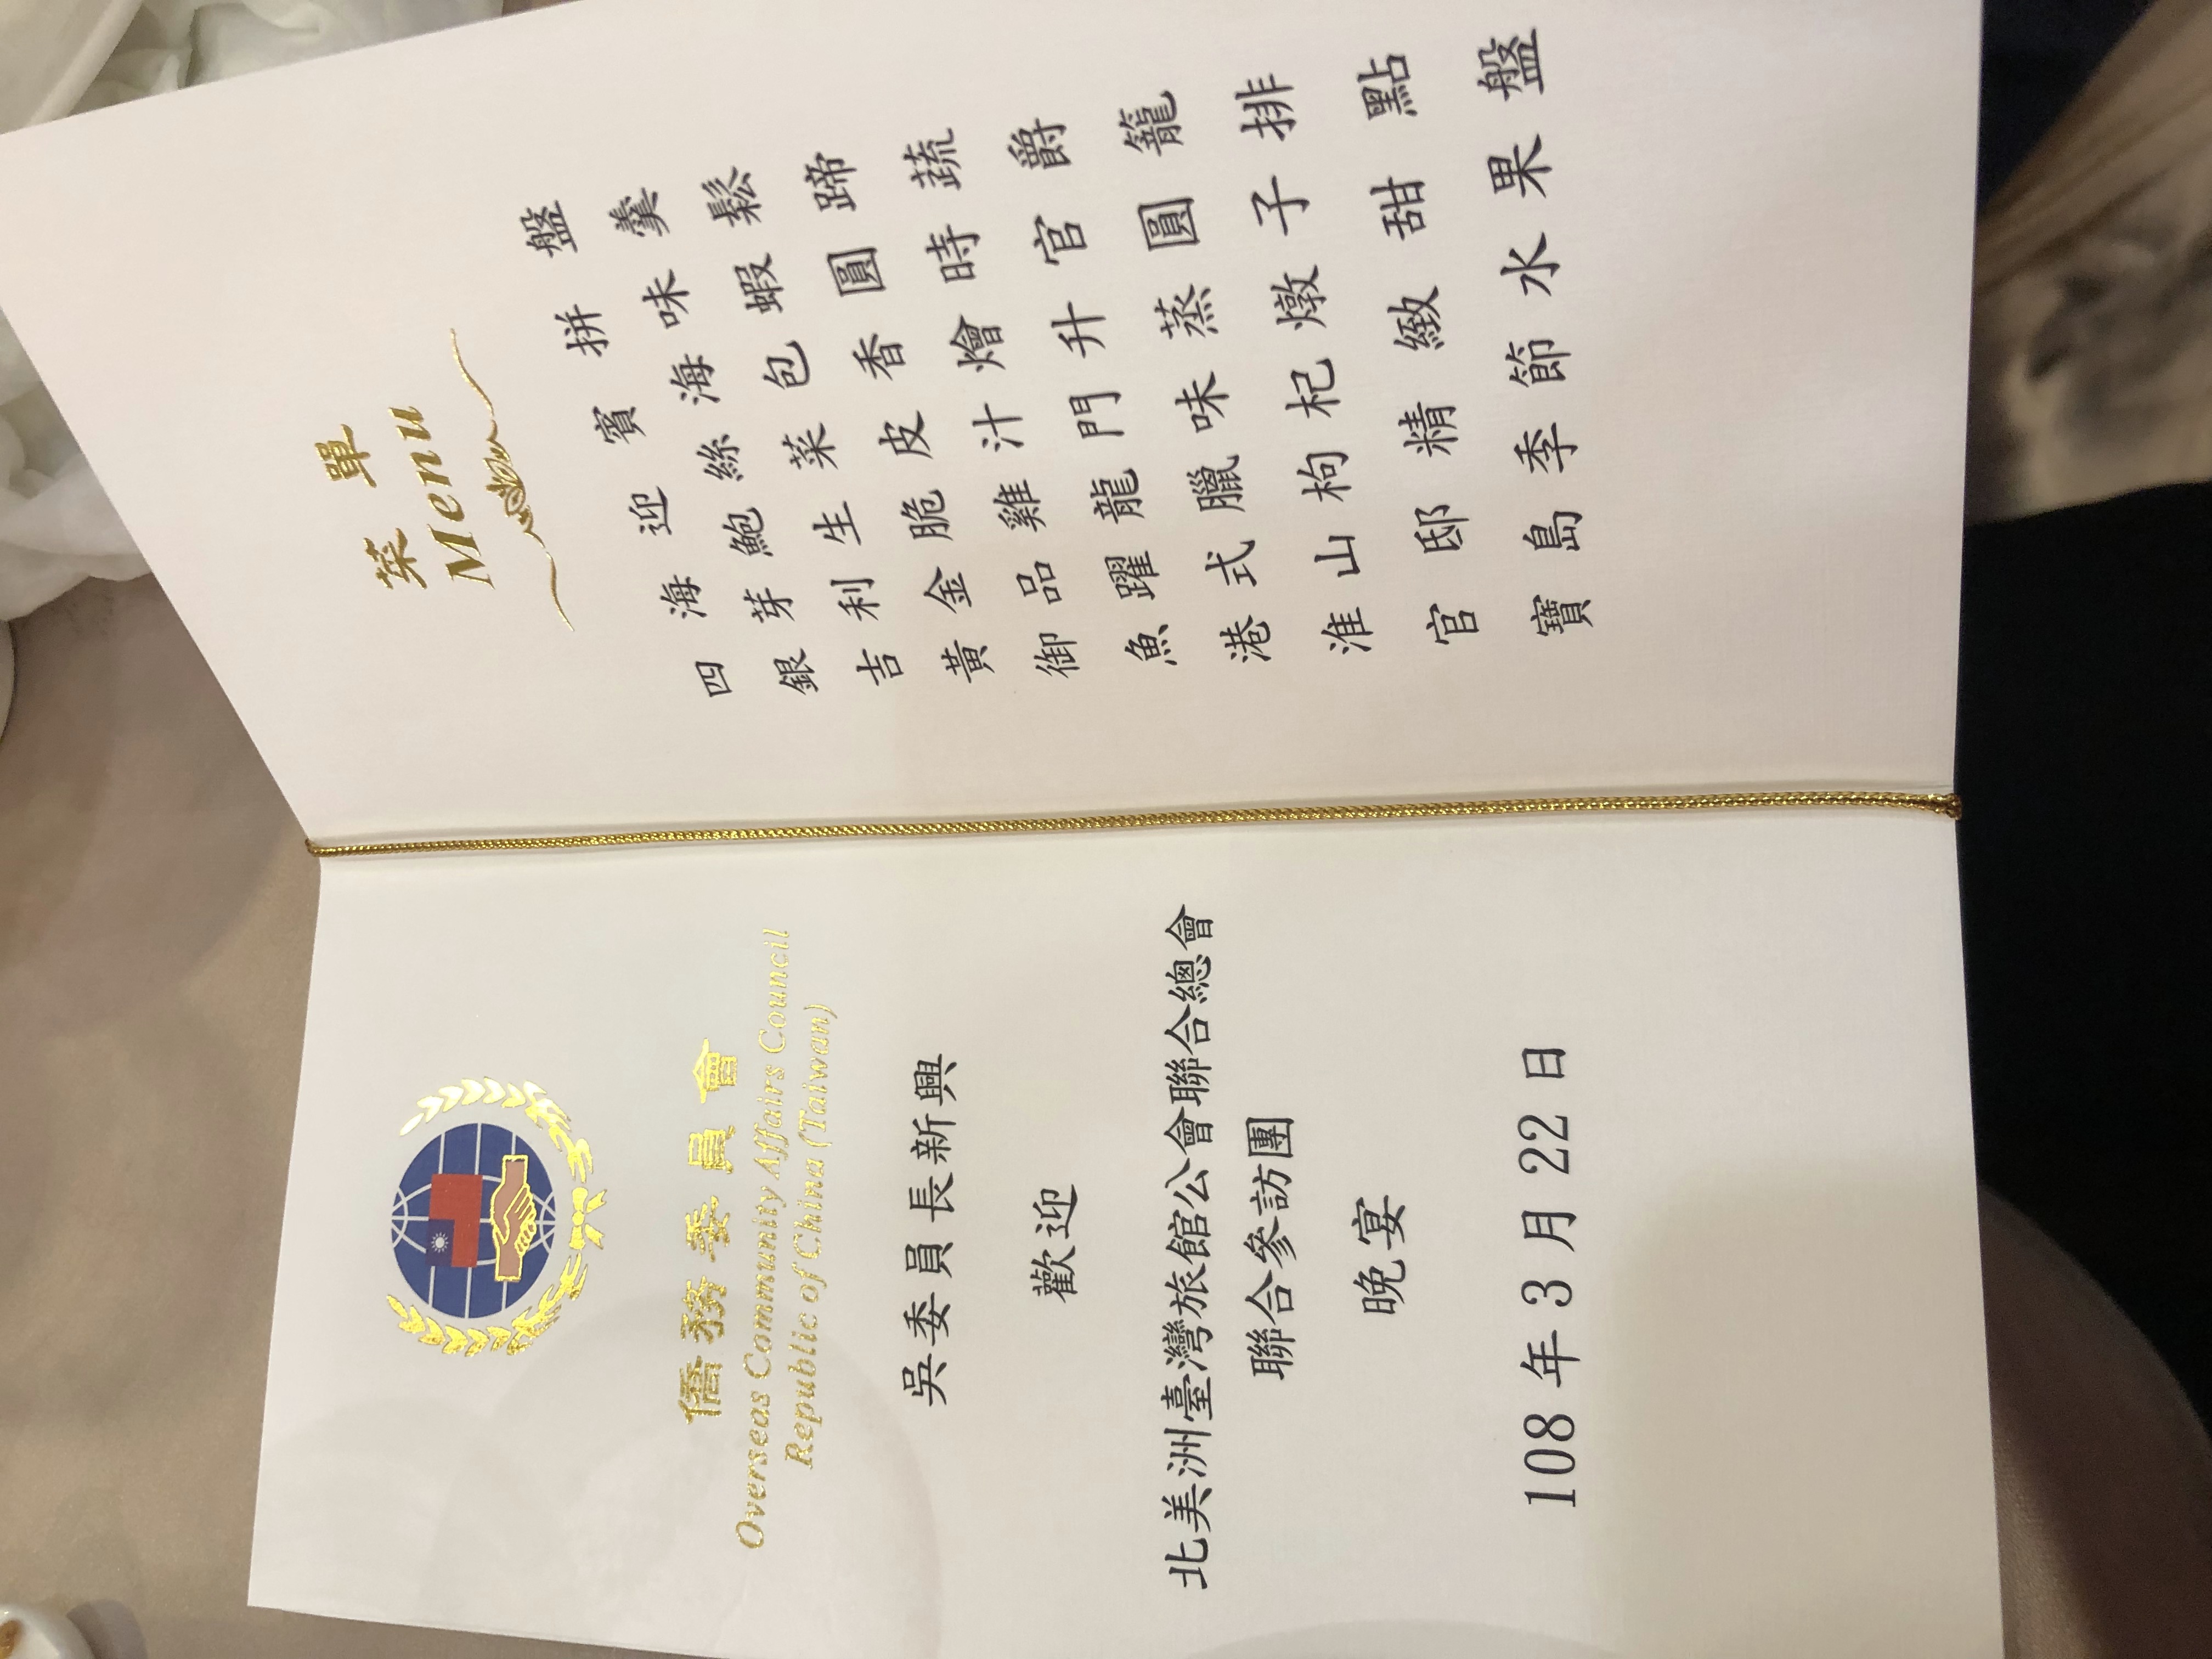 僑務委員會
Overseas Community Affairs Council
Republic of China (Taiwan)
吳委員長新興
歡迎
北美洲臺灣旅館公會聯合總會
聯合參訪團
晚宴
108年3月22日
菜單
Menu
四海迎賓拼盤
銀芽鮑絲海味羹
吉利生菜包蝦鬆
黃金脆皮香圓蹄
御品雞汁燴時蔬
魚躍龍門升官爵
港式臘味蒸圓籠
淮山枸杞燉子排
官邸精緻甜點
寶島季節水果盤